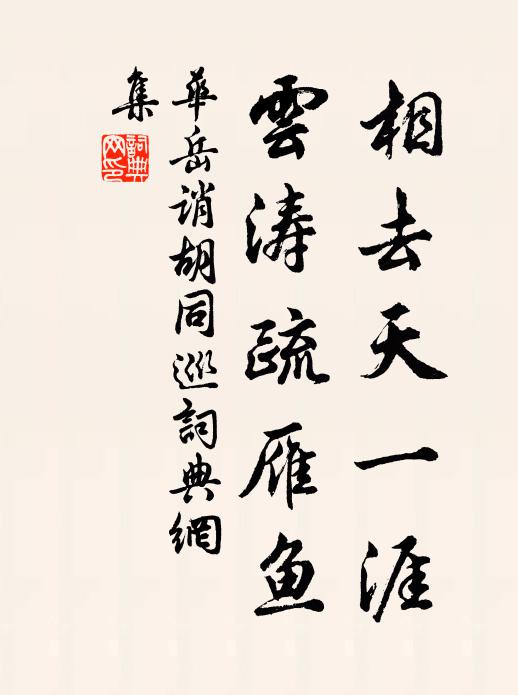 相去天一涯
雲涛疏雁鱼
華岳诮胡同巡詞典網
集
詞典
网印